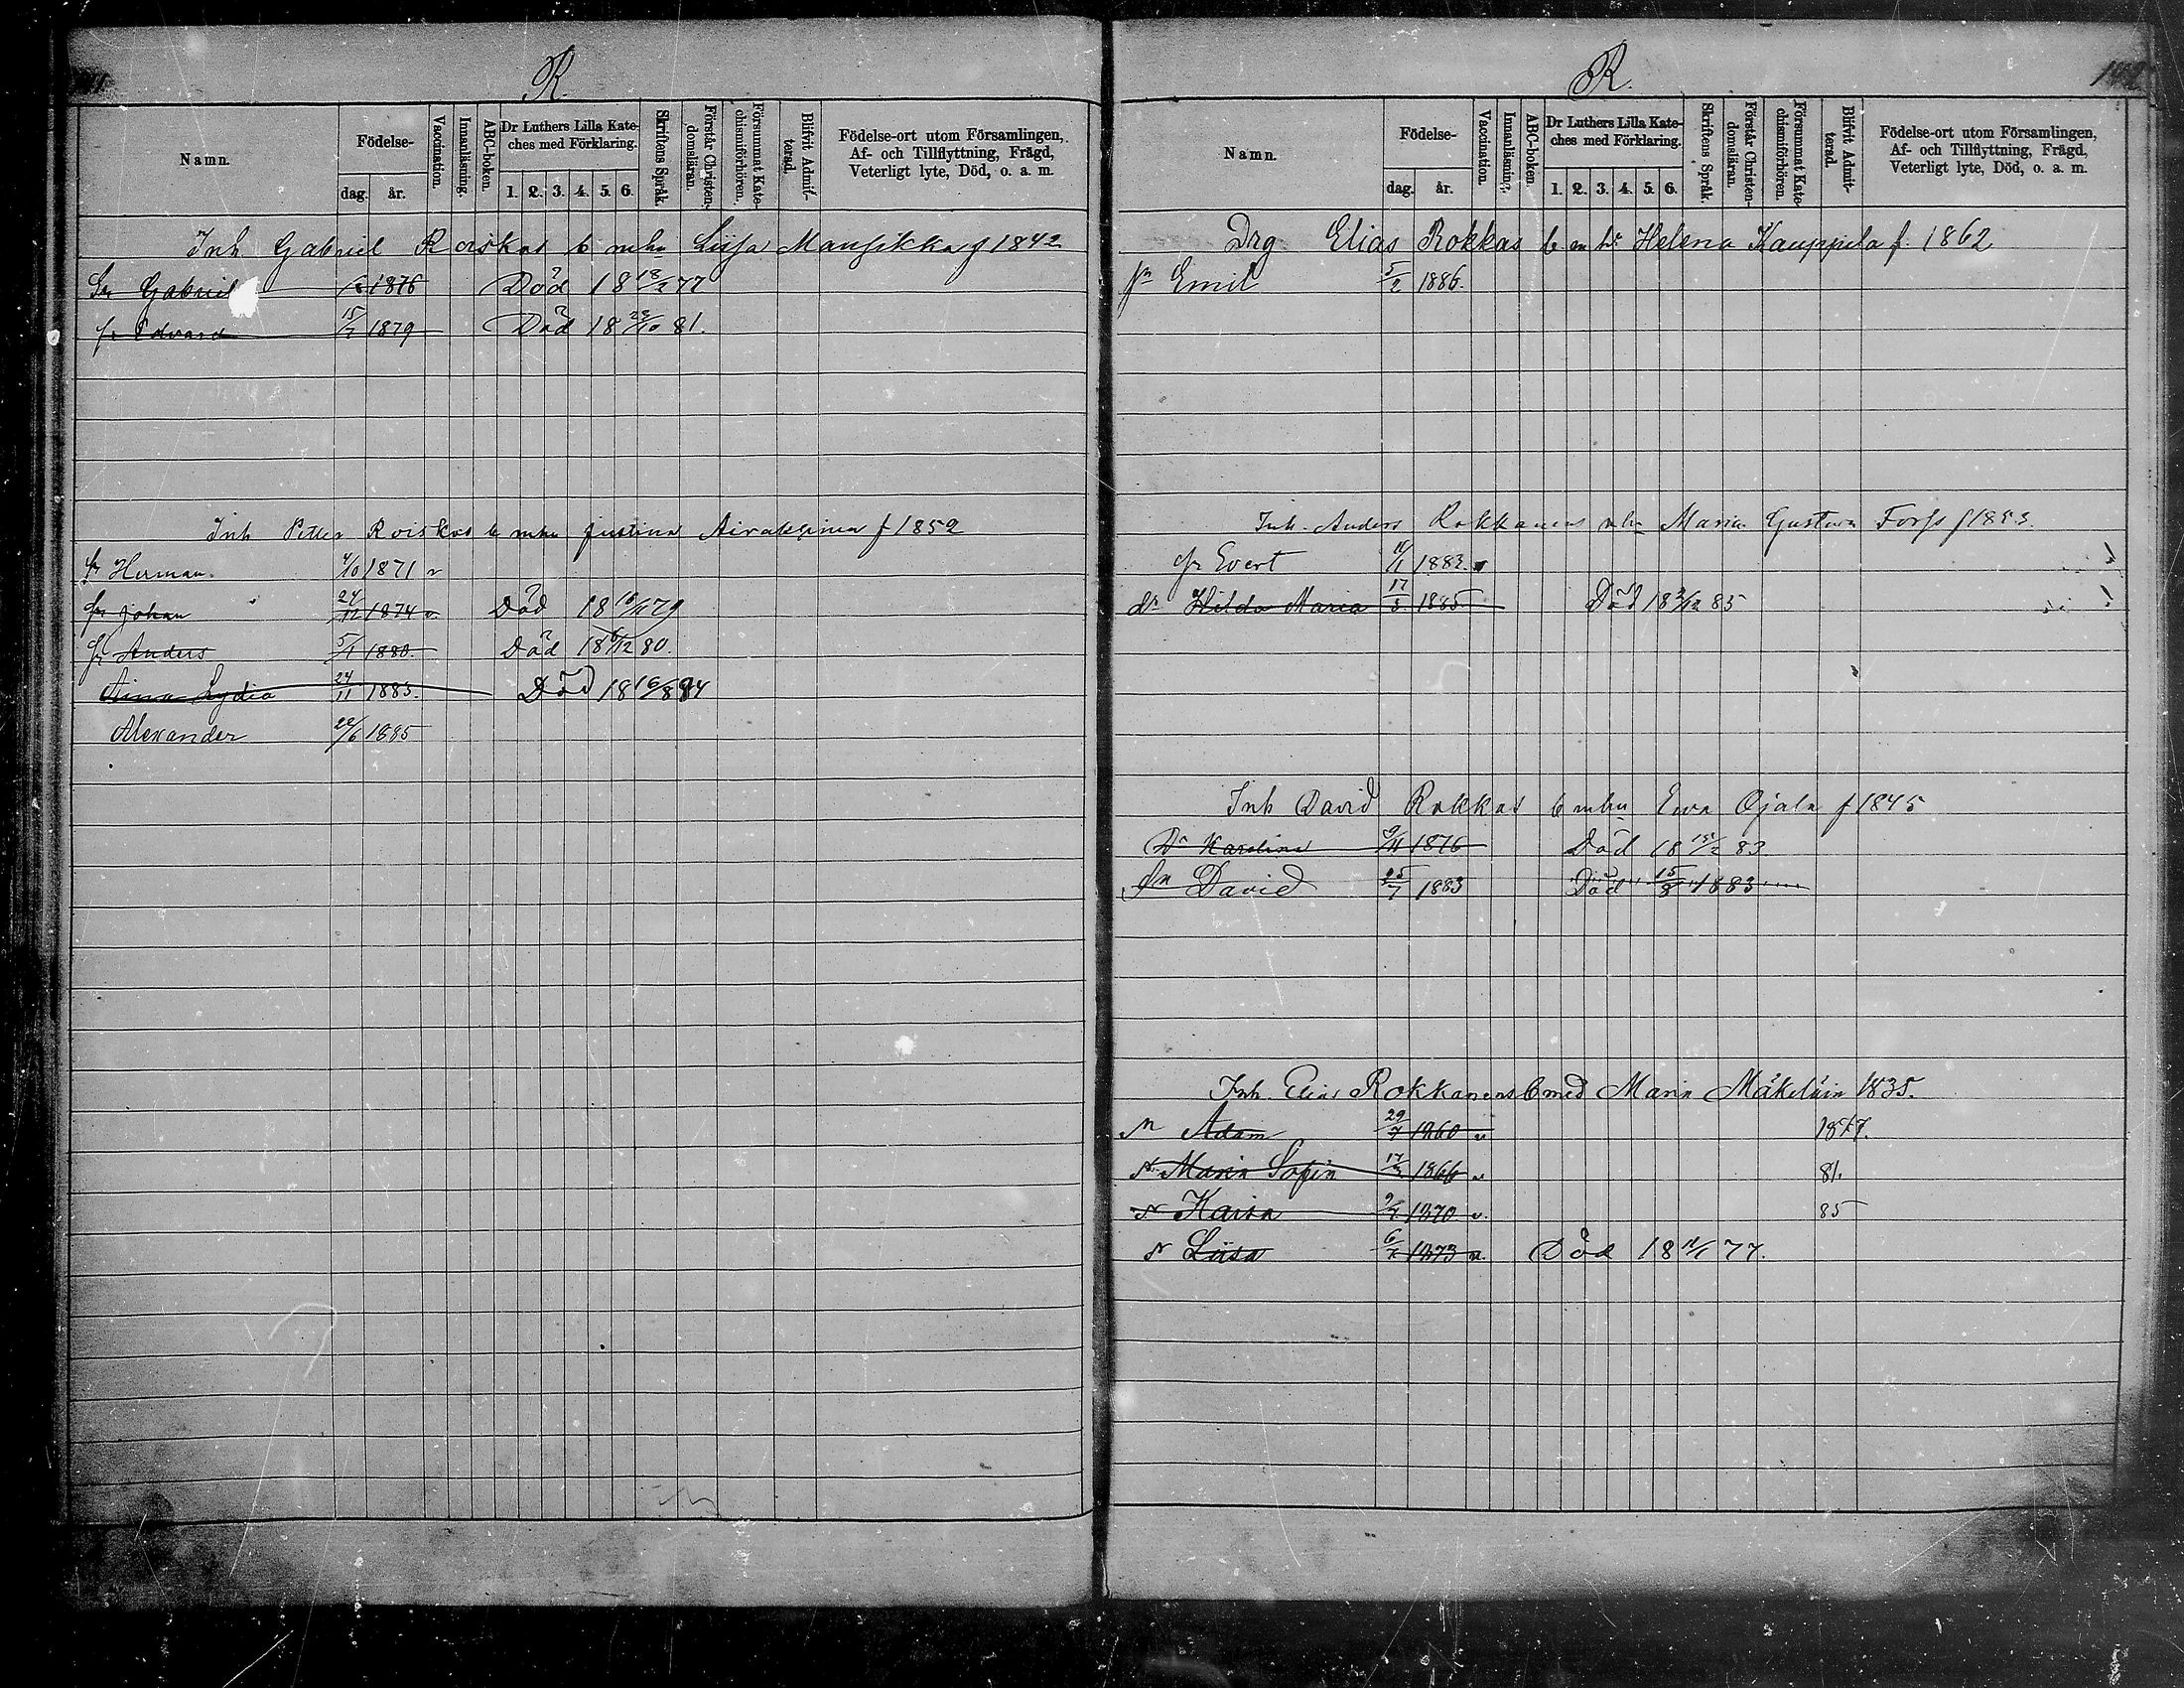 R.
Namn. Födelse- dag. år. Vaccination. Innanläsning. ABC-boken. Dr Luthers Lilla Kateches med Förklaring. 1. 2. 3. 4. 5. 6. Skriftens Språk. Förstår Christendomsläran. Försummat Katechismiförhören. Blifvit Admitterad. Födelse-ort utom Församlingen, Af- och Tillflyttning, Frägd, Veterligt lyte, Död, o. a. m.
Inh Gabriel Roiskas b mhu Liisa Mansikka f 1842
Sn Gabriel 1876 Död 18 18/2 77
sn Edvard 15/7 1879 Död 18 /10 81.
Inh Petter Roiskas b mhu Justina Airaksinen f 1852
sn Herman. 4/10 1871 v
sn Johan 24/12 1874 v. Död 18 16/11 79
sn Anders 5/1 1880. Död 18 6/12 80.
Aina Lydia 24/11 1883. Död 18 16/8 84
Alexander 22/6 1885
R. 142
Namn. Födelse- dag. år. Vaccination. Innanläsning. ABC-boken. Dr Luthers Lilla Kateches med Förklaring. 1. 2. 3. 4. 5. 6. Skriftens Språk. Förstår Christendomsläran. Försummat Katechismiförhören. Blifvit Admitterad. Födelse-ort utom Församlingen, Af- och Tillflyttning, Frägd, Veterligt lyte, Död, o. a. m.
Drg Elias Rokkas b m hu Helena Kauppila f. 1862
sn Emil 5/2 1886.
Inh. Anders Rokkanens mhu Maria Gustava Forss f 1853.
sn Evert 11/1 1883. v
dr Hilda Maria 17/8. 1885 Död 18 2/12 85
Inh David Rokkas b mhu Ewa Ojala f 1845
Dr Karolina 9/11 1876 Död 18 15/2 83
sn David 25/7 1883 Död 15/8 1883
Inh. Elias Rokkanens b med Maria Mäkeläin 1835.
Adam 29/7 1860 v 1877.
Maria Sofia 17/3 1866 v 81.
Kaisa 1870 v. 85
Liisa 1873 v. Död 18 11/1 77.